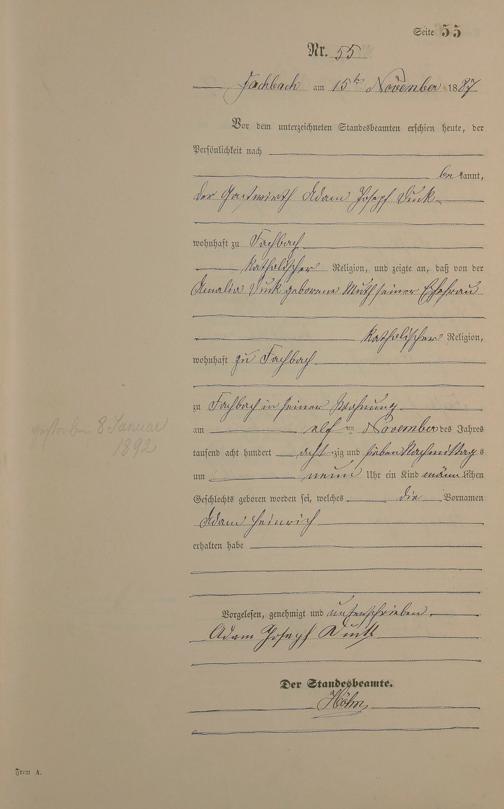 Seite 55
Nr. 55
Fachbach am 15ten November 1887
Vor dem unterzeichneten Standesbeamten erschien heute, der
Persönlichkeit nach
be kannt,
der Gastwirth Adam Joseph
wohnhaft zu Fachbach
katholischer Religion, und zeigte an, daß von der
Amalia geborene Muth seiner Ehefrau
katholischer Religion,
wohnhaft zu Fachbach
zu Fachbach in seiner Wohnung
am elf ten November des Jahres
tausend acht hundert acht zig und sieben Nachmittag s
um neun Uhr ein Kind männ lichen
Geschlechts geboren worden sei, welches die Vornamen
Adam Heinrich
erhalten habe
gestorben 8 Januar
1892
Vorgelesen, genehmigt und unterschrieben
Adam Joseph
Der Standesbeamte.
Höhn
Form A.